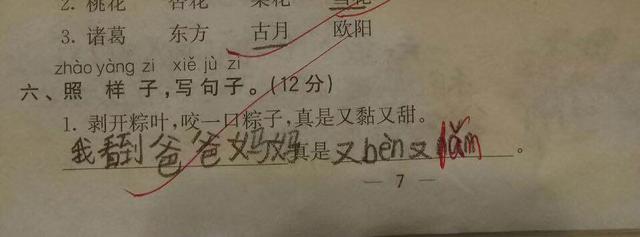 2. 桃花 杏花 菜花 雪花
3. 诸葛 东方 古月 欧阳
zhào yàng zi xiě jù zi
六、照样子,写句子。(12分)
1. 剥开粽叶,咬一口粽子,真是又黏又甜。
我看到爸爸妈妈真是又bèn又lǎm。
— 7 —